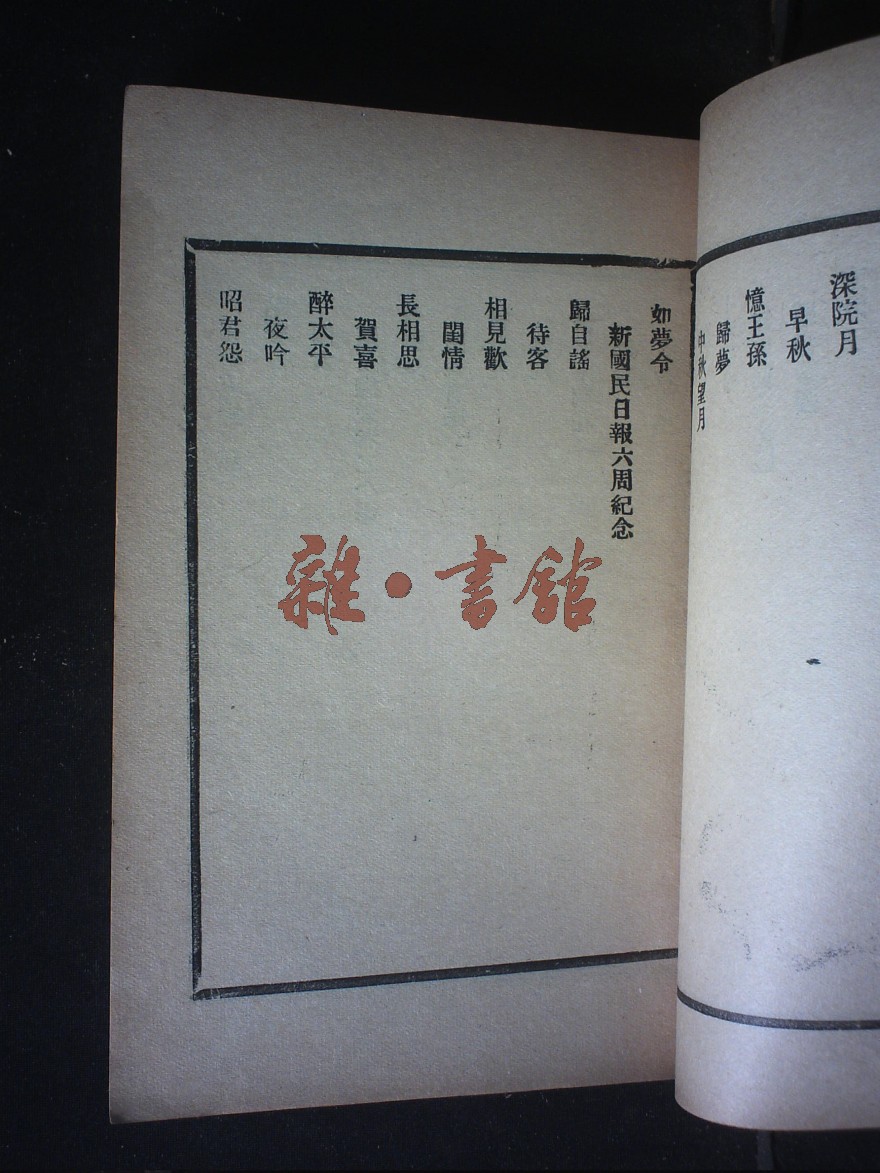 深院月
早秋
憶王孫
歸夢
中秋望月
如夢令
新國民日報六周紀念
歸自謠
待客
相見歡
閨情
長相思
賀喜
醉太平
夜吟
昭君怨
雜·書館